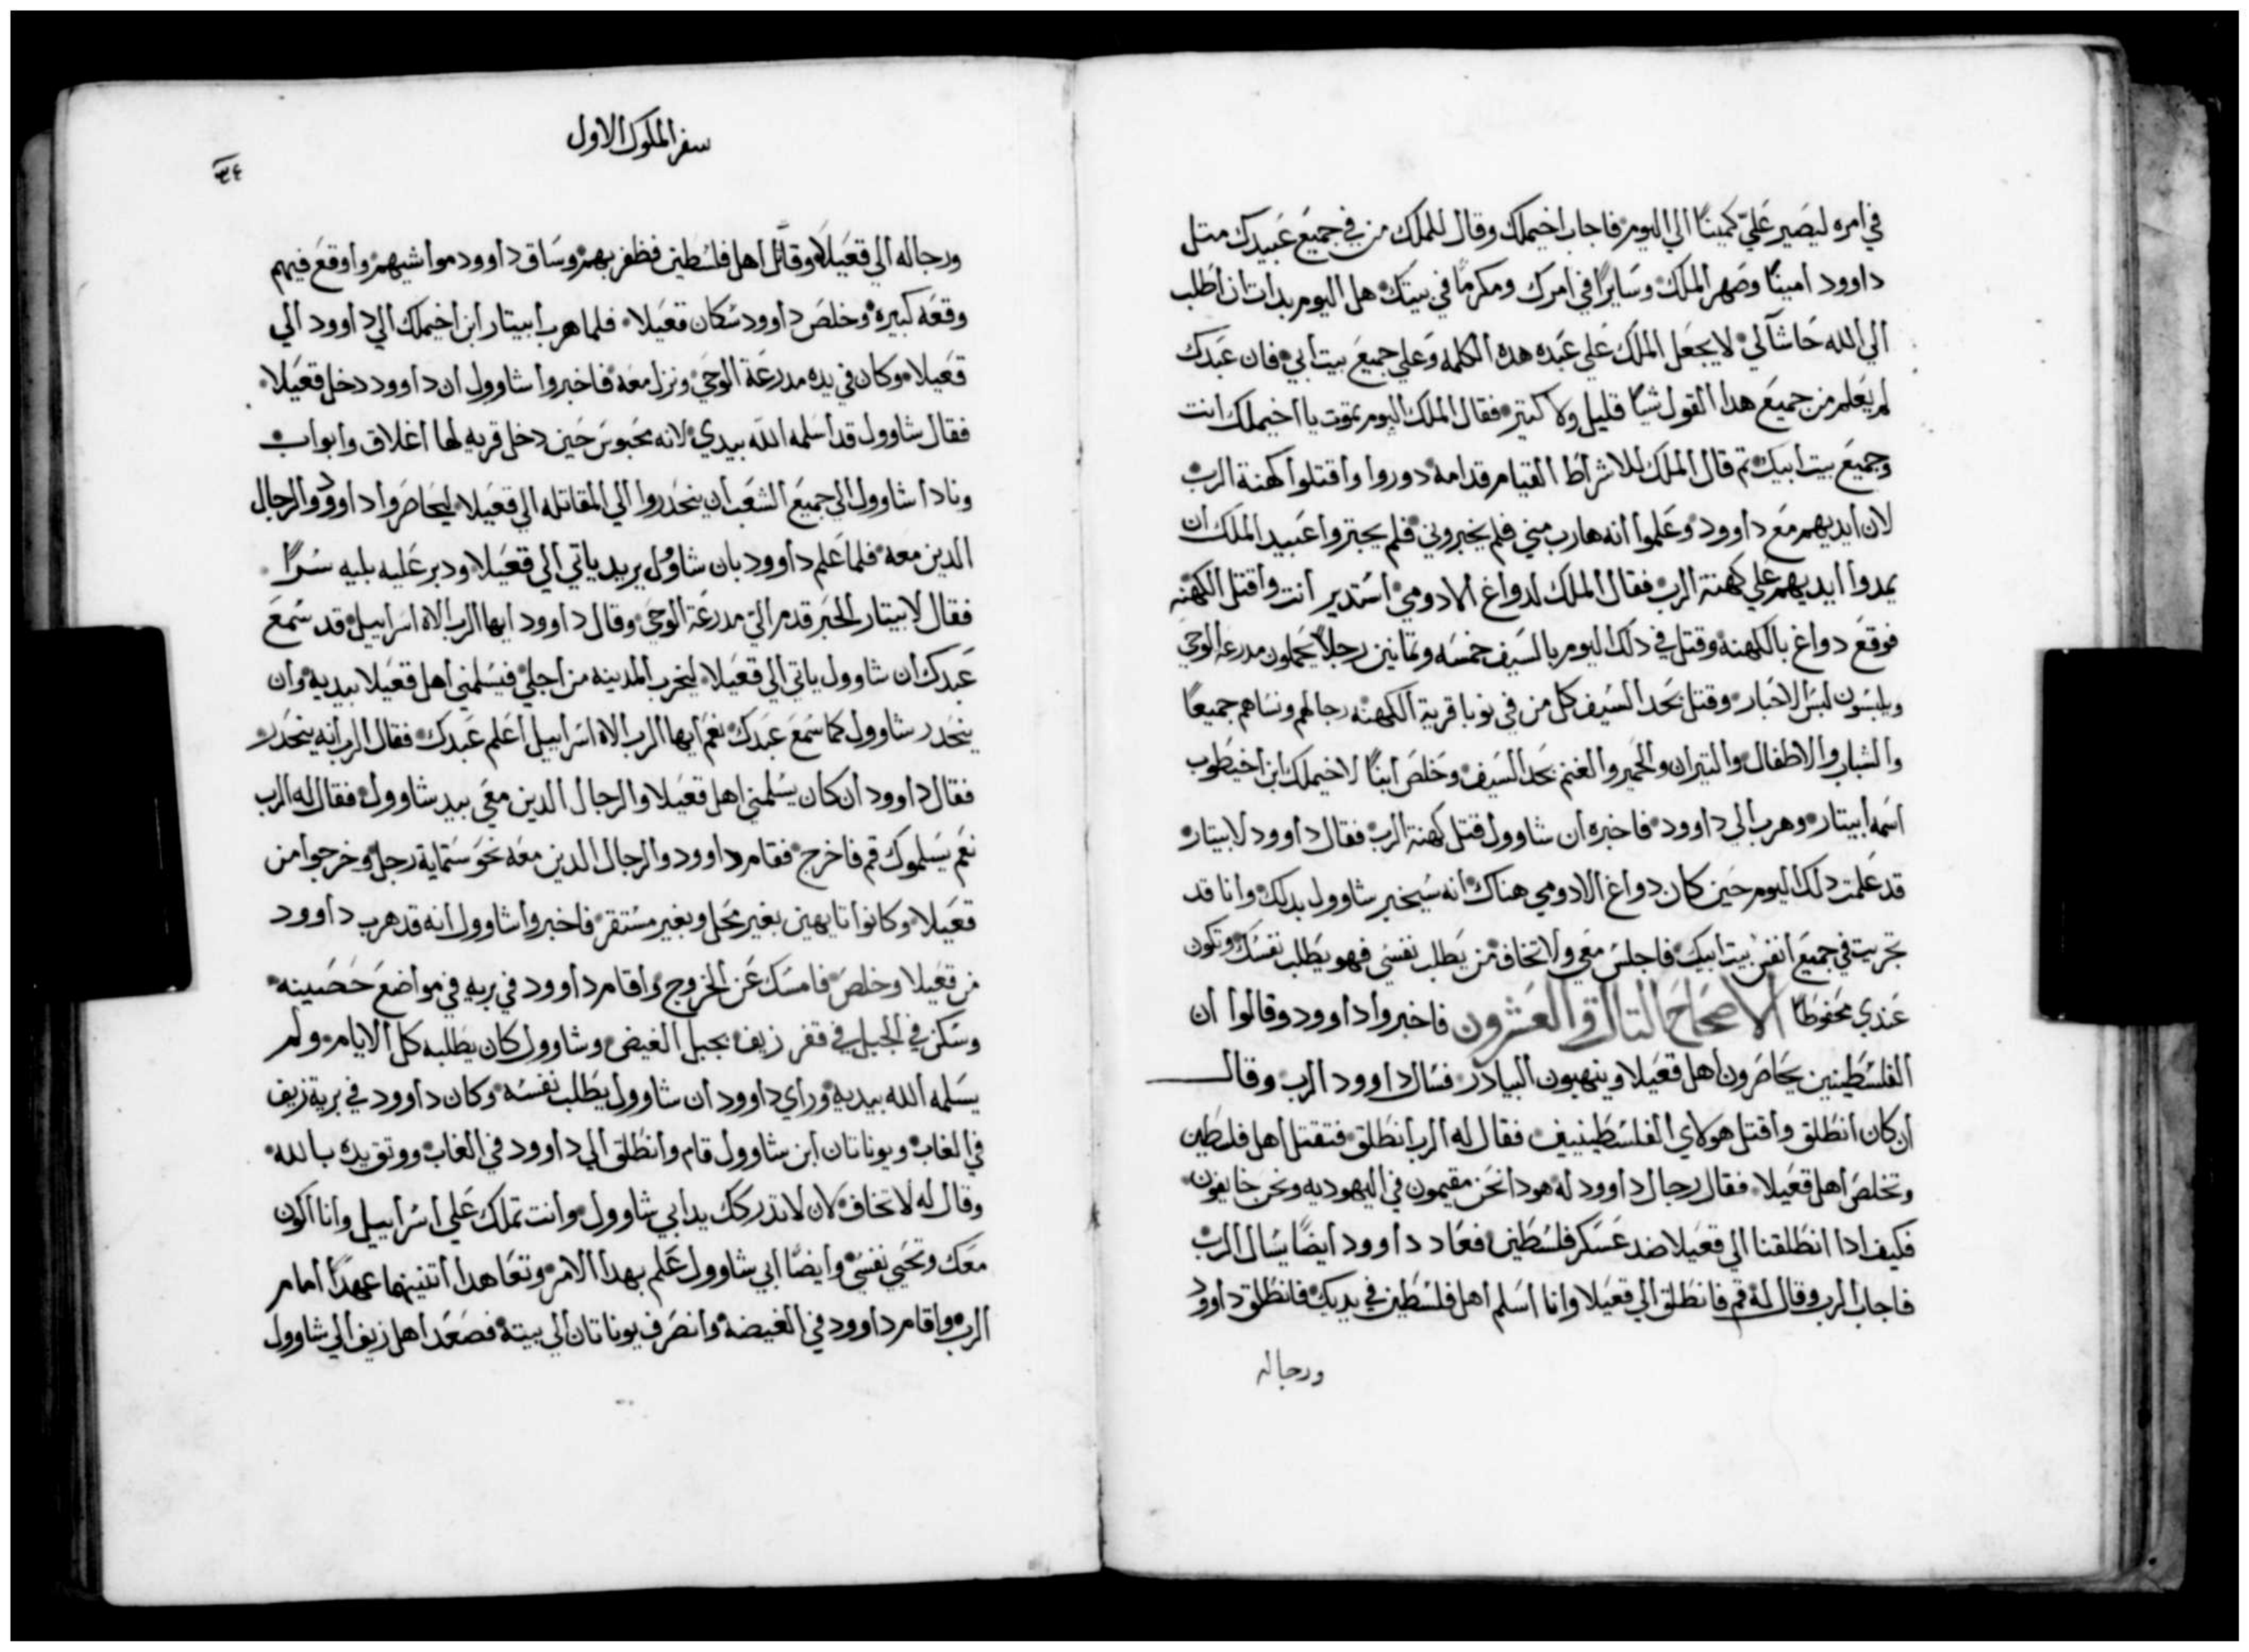 في امره ليصير عليّ كمينًا الي اليوم فاجاب اخيملك وقال للملك من في جميع عبيدك متل
داوود امينًا وصهر الملك وسايرًا في امرك ومكرمًا في بيتك هل اليوم بدات ان اطلب
الي الله حاشا لي لا يجعل الملك علي عبده هده الكلمه وعلي جميع بيت ابي فان عبدك
لم يعلم من جميع هدا القول شيًا قليل ولا كتير فقال الملك اليوم تموت يا اخيملك انت
وجميع بيت ابيك تم قال الملك للاشراط القيام قدامه دوروا واقتلوا كهنة الرب
لان ايديهم مع داوود وعلموا انه هارب مني فلم يخبروني فلم يجتروا عبيد الملك ان
يمدوا ايديهم علي كهنة الرب فقال الملك لدواغ الادومي استدير انت واقتل الكهنه
فوقع دواغ بالكهنه وقتل في دلك اليوم بالسيف خمسه وتمانين رجلاً يحملون مدرعة الوحي
ويلبسون لبس الاحبار وقتل بحد السيف كل من في نوبا قرية الكهنه رجالهم ونساهم جميعًا
والشباب والاطفال والتيران والحمير والغنم بحد السيف وخلص ابنًا لاخيملك ابن اخيطوب
اسمه ابيتار وهرب الي داوود فاخبره ان شاوول قتل كهنة الرب فقال داوود لابيتار
قد علمت دلك اليوم حين كان دواغ الادومي هناك انه سيخبر شاوول بدلك وانا قد
تجريت في جميع انفس بيت ابيك فاجلس معي ولا تخاف من يطلب نفسي فهو يطلب نفسك وتكون
عندي محفوظًا الاصحاح التالت والعشرون فاخبروا داوود وقالوا ان
الفلسطينين يحاصرون اهل قعيلا وينهبون البيادر فسال داوود الرب وقال
ان كان انطلق واقتل هولاي الفلسطينيين فقال له الرب انطلق فتقتل اهل فلسطين
وتخلص اهل قعيلا فقال رجال داوود له هودا نحن مقيمون في اليهوديه ونحن خايفون
فكيف ادا انطلقنا الي قعيلا ضد عسكر فلسطين فعاد داوود ايضًا يسال الرب
فاجاب الرب وقال له قم فانطلق الي قعيلا وانا اسلم اهل فلسطين في يديك فانطلق داوود
ورجاله
سفر الملوك الاول
٣٤
ورجاله الي قعيلا وقاتل اهل فلسطين فظفر بهم وساق داوود مواشيهم واوقع فيهم
وقعه كبيره وخلص داوود سكان قعيلا فلما هرب ابيتار ابن اخيملك الي داوود الي
قعيلا وكان في يده مدرعة الوحي ونزل معه فاخبروا شاوول ان داوود دخل قعيلا
فقال شاوول قد اسلمه الله بيدي لانه محبوس حين دخل قريه لها اغلاق وابواب
ونادا شاوول الي جميع الشعب ان ينحدروا الي المقاتله الي قعيلا ليحاصروا داوود والرجال
الدين معه فلما علم داوود بان شاوُل يريد ياتي الي قعيلا ودبر عليه بليه سرًا
فقال لابيتار الحبر قدم اليّ مدرعة الوحي وقال داوود ايها الرب الاه اسراييل قد سمع
عبدك ان شاوول ياتي الي قعيلا ليخرب المدينه من اجلي فيسلمني اهل قعيلا بيديه وان
ينحدر شاوول كما سمع عبدك نعم ايها الرب الاه اسراييل اعلم عبدك فقال الرب انه ينحدر
فقال داوود ان كان يسلمني اهل قعيلا والرجال الدين معي بيد شاوول فقال له الرب
نعم يسلموك قم فاخرج فقام داوود والرجال الدين معه نحو ستماية رجل وخرجوا من
قعيلا وكانوا تايهين بغير محل وبغير مستقر فاخبروا شاوول انه قد هرب داوود
من قعيلا وخلص فامسك عن الخروج واقام داوود في بريه في مواضع حصينه
وسكن في الجبل في قفر زيف بجبل الغيض وشاوول كان يطلبه كل الايام ولم
يسلمه الله بيديه وراي داوود ان شاوول يطلب نفسه وكان داوود في برية زيف
في الغاب ويوناتان ابن شاوول قام وانطلق الي داوود في الغاب ووتق يده بالله
وقال له لا تخاف لان لا تدركك يد ابي شاوول وانت تملك علي اسراييل وانا اكون
معك وتحيي نفسي وايضًا ابي شاوول علم بهدا الامر وتعاهدا اتنينهما عهدًا امام
الرب واقام داوود في الغيضه وانصرف يوناتان الي بيته فصعد اهل زيف الي شاوول